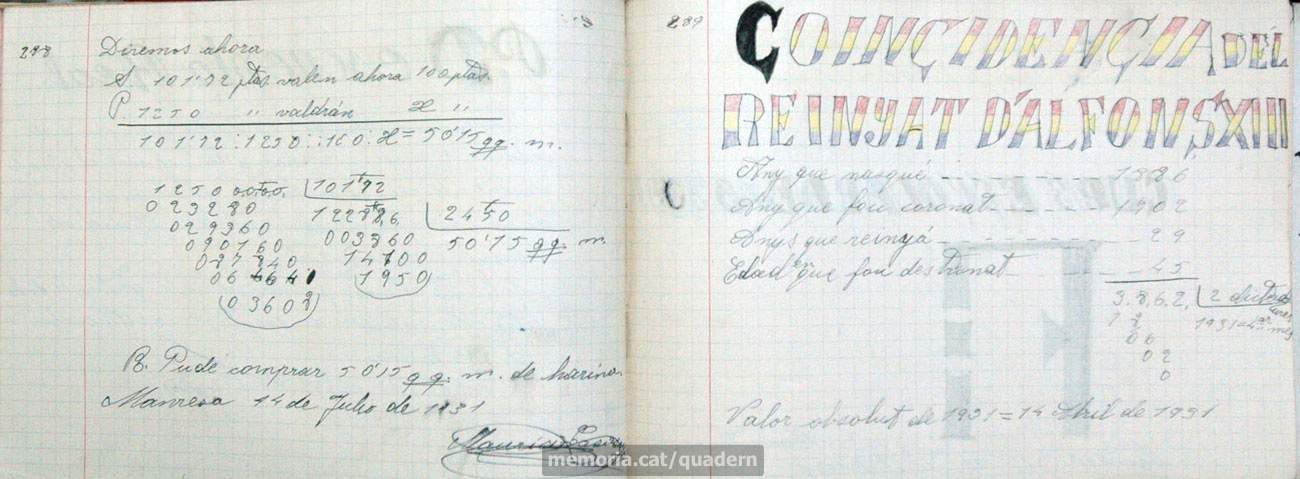 288
Diremos ahora
S. 101'92 ptas valen ahora 100 ptas.
P. 1250 " valdrán x "
101'92 : 1250 :: 100 : x = 50'15 qq. m.
1250 00'00' | 101'92
023280 122
029360 003
090160 14
087840 1950
2450
50'15 qq. m.
(03608)
R. Pudé comprar 50'15 qq. m. de harina.
Manresa 14 de Julio de 1931
289
COINÇIDENÇIA DEL
REINYAT D'ALFONS XIII
Any que nasqué 1886
Any que fou coronat 1902
Anys que reinyá 29
Edad en que fou destronat 45
3.8,6.2, | 2
18 1931=4art mes
06
02
0
Valor absolut de 1931 = 14 Abril de 1931
memoria.cat/quadern